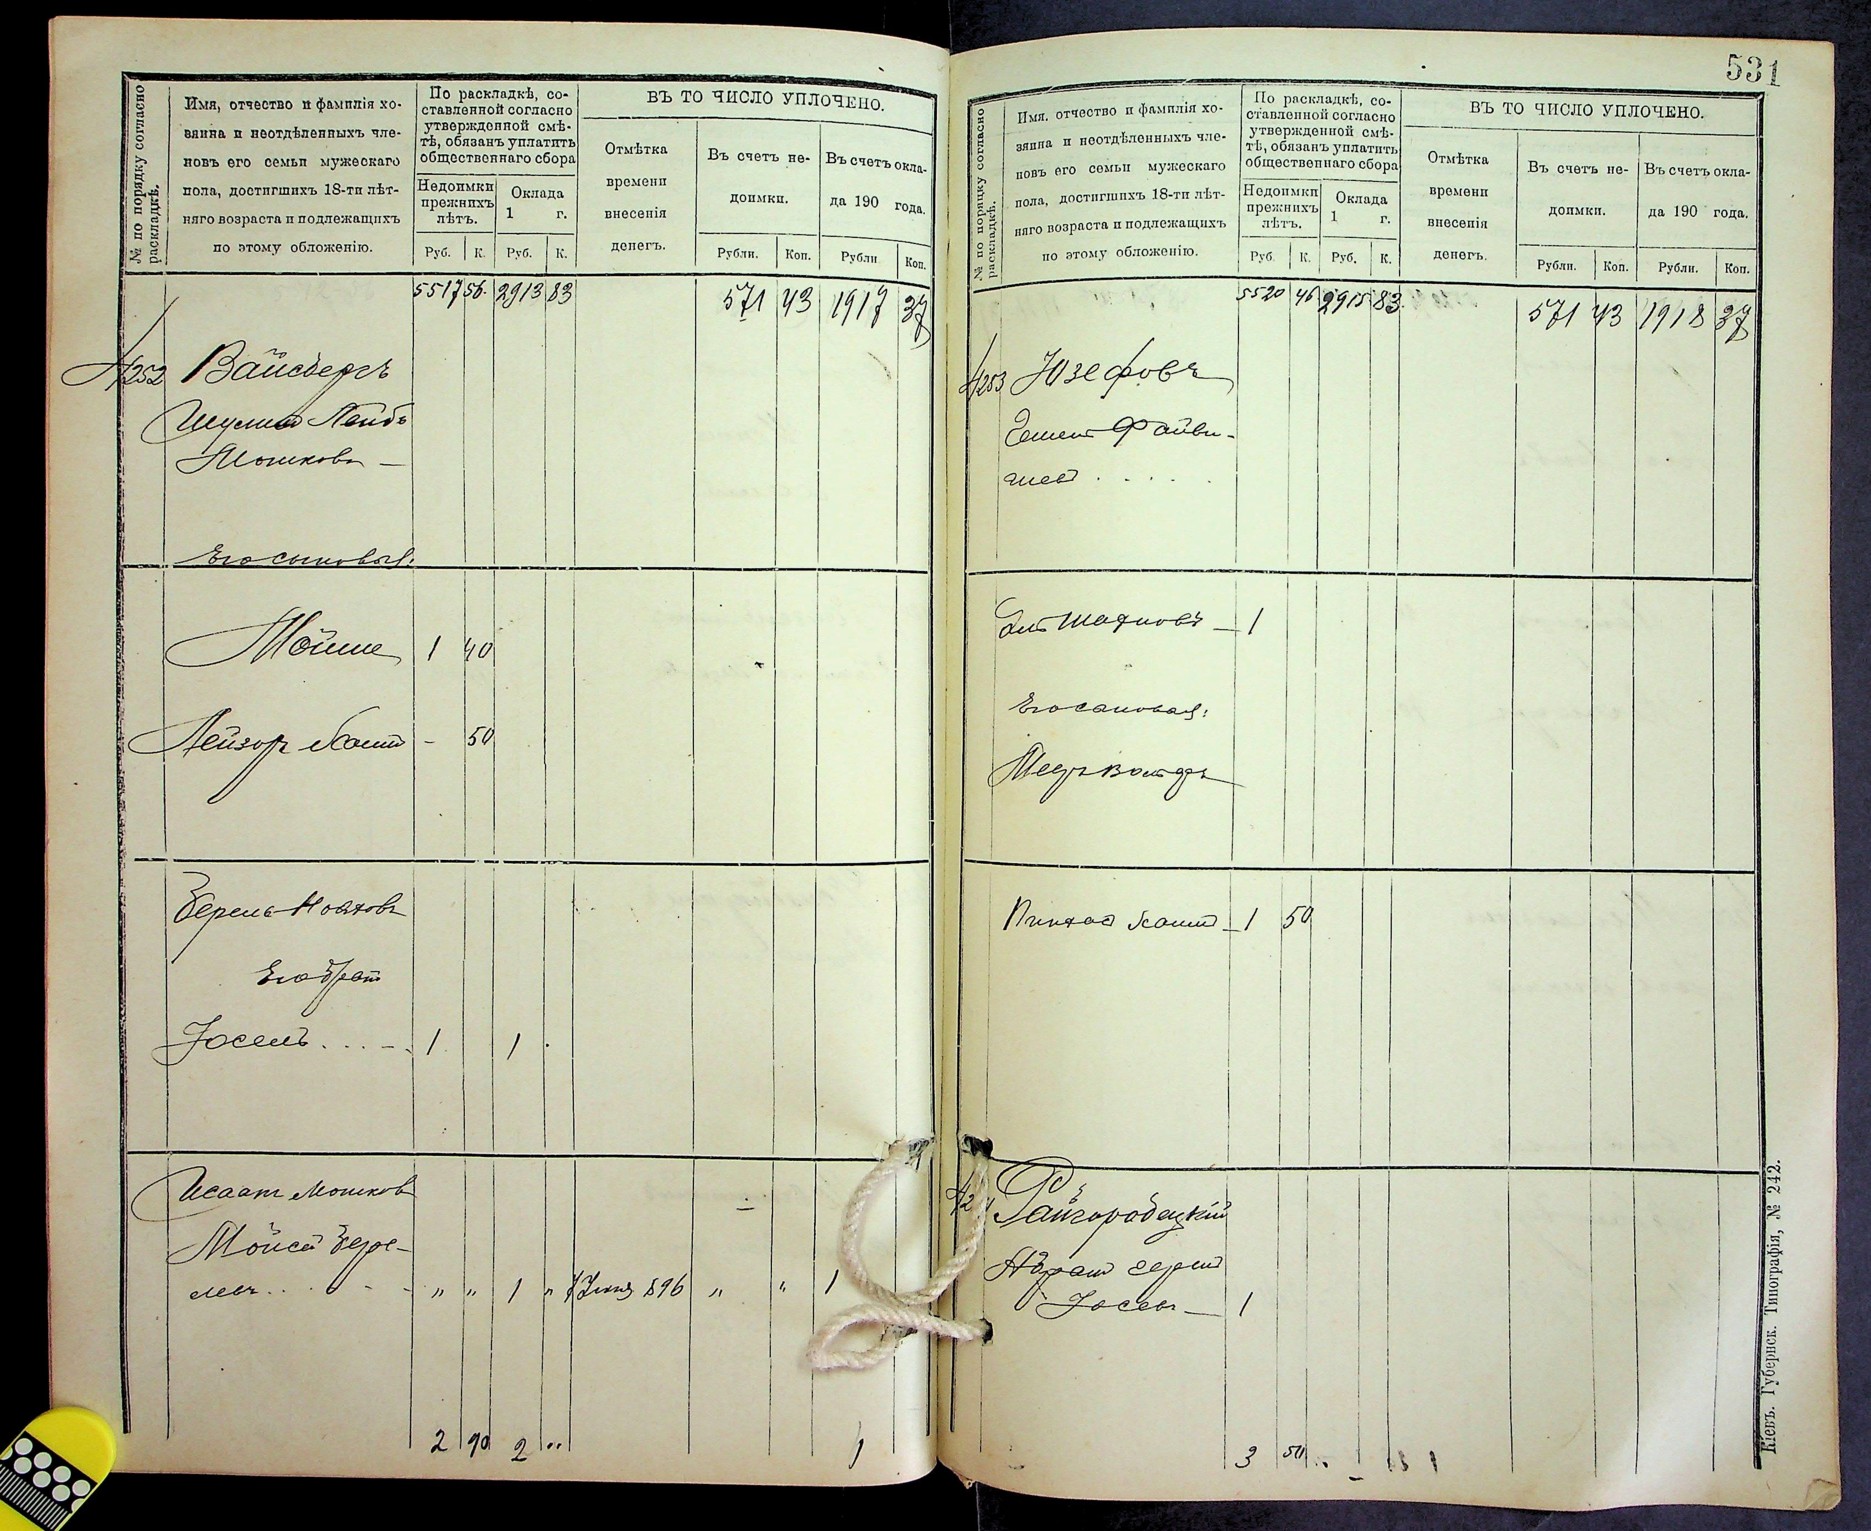 531
№ по порядку согласно раскладкѣ.
Имя, отчество и фамилія хо-
зяина и неотдѣленныхъ чле-
новъ его семьи мужескаго
пола, достигшихъ 18-ти лѣт-
няго возраста и подлежащихъ
по этому обложенію.
По раскладкѣ, со-
ставленной согласно
утвержденной смѣ-
тѣ, обязанъ уплатить
общественнаго сбора
Недоимки прежнихъ лѣтъ.
Оклада 1 г.
Руб. К. Руб. К.
ВЪ ТО ЧИСЛО УПЛОЧЕНО.
Отмѣтка
времени
внесенія
денегъ.
Въ счетъ не-
доимки.
Въ счетъ окла-
да 190 года.
Рубли. Коп. Рубли Коп.
5517 56. 2913 83 571 43 1917 37
252 Вайсбергъ
Шулим Лейбъ
Мошковъ —
Его сыновья:
Мойше 1 40
Лейзор Хаим - 50
Берель
Его брат
Иосель 1 1
Исаак Мошков
Мойсей Бере-
лев " " 1 " Июня 896 " " 1
2 90 2 " 1
№ по порядку согласно раскладкѣ.
Имя, отчество и фамилія хо-
зяина и неотдѣленныхъ чле-
новъ его семьи мужескаго
пола, достигшихъ 18-ти лѣт-
няго возраста и подлежащихъ
по этому обложенію.
По раскладкѣ, со-
ставленной согласно
утвержденной смѣ-
тѣ, обязанъ уплатить
общественнаго сбора
Недоимки прежнихъ лѣтъ.
Оклада 1 г.
Руб. К. Руб. К.
ВЪ ТО ЧИСЛО УПЛОЧЕНО.
Отмѣтка
времени
внесенія
денегъ.
Въ счетъ не-
доимки.
Въ счетъ окла-
да 190 года.
Рубли. Коп. Рубли. Коп.
5520 46 2915 83 571 43 1918 37
253 Юзефовъ
Файви-
шев . . . .
— 1
Его сыновья:
Меер Вольф
Пинхас Хаим — 1 50
Райгородецкій
Абрам
Иосев — 1
3 50
Кіевъ. Губернск. Типографія, № 242.